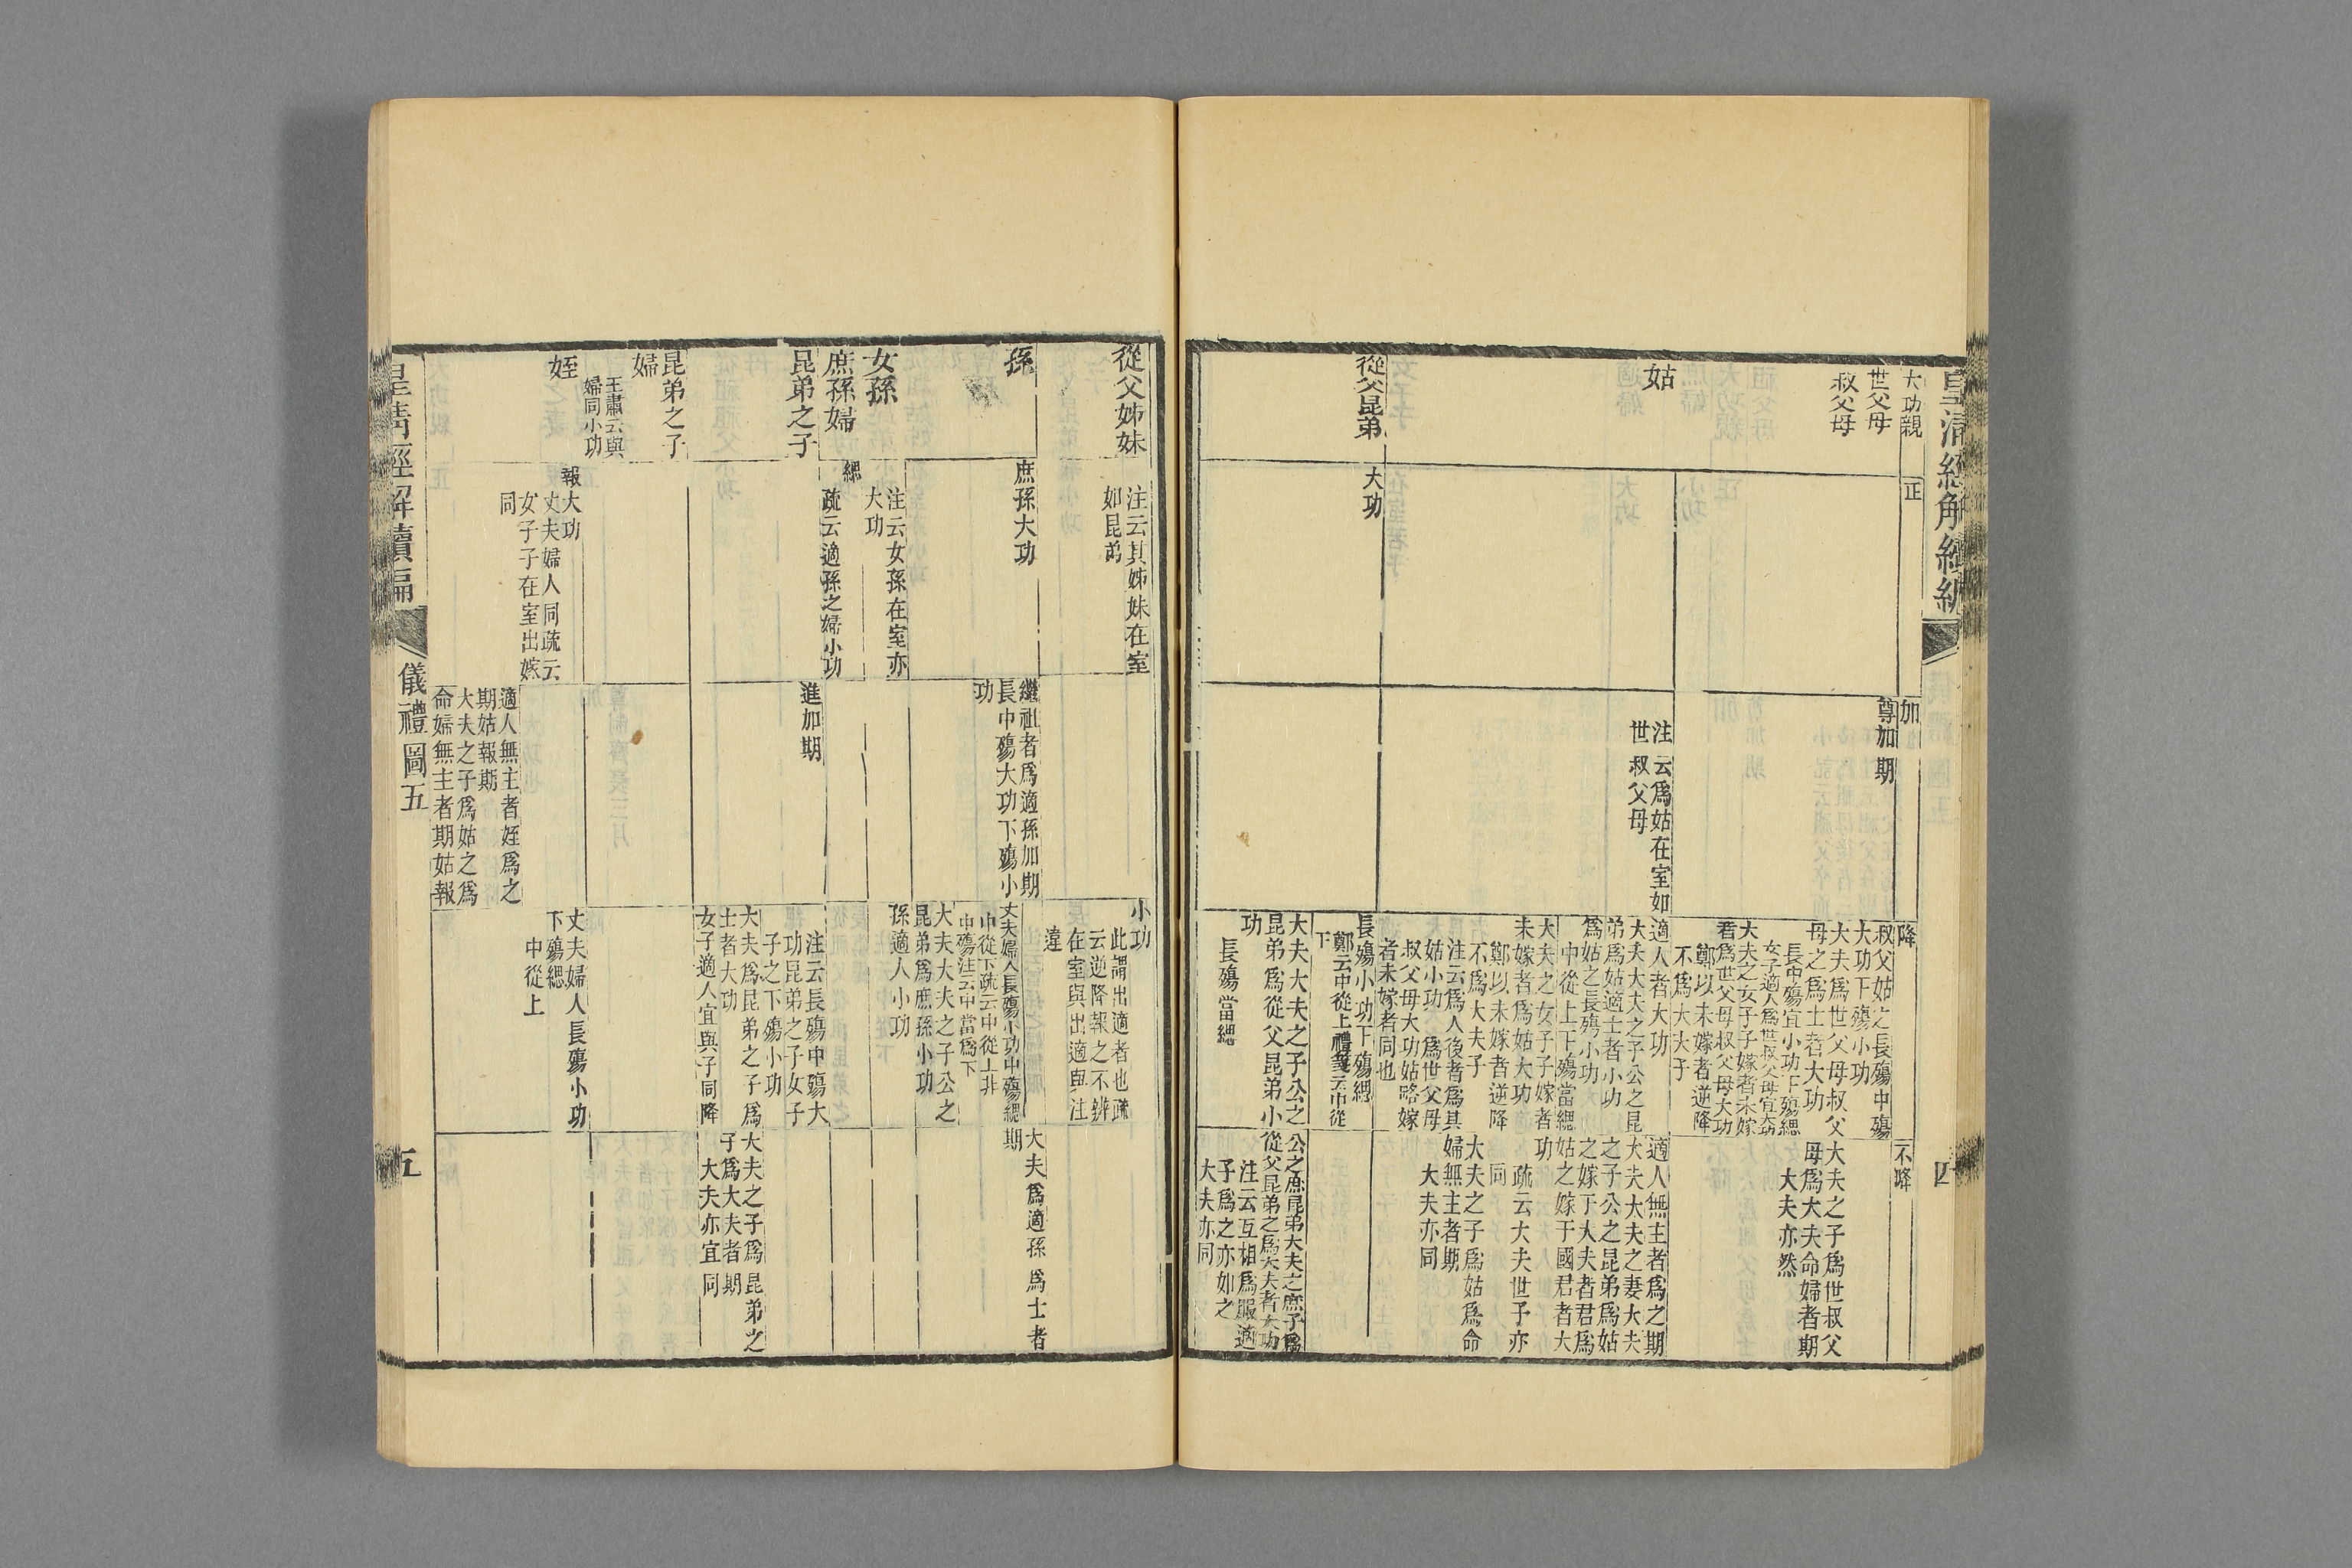 大功親
正
加
降
不降
世父母
叔父母
尊加期
叔父姑之長殤中殤
大功下殤小功
大夫為世父母叔父
母之為士者大功
長中殤宜小功下殤緦
女子適人為世叔父母宜大功
大夫之女子子嫁者未嫁
者為世父母叔父母大功
鄭以未嫁者逆降
不為大夫子
大夫之子為世叔父
母為大夫命婦者期
大夫亦然
姑
注云為姑在室如
世叔父母
適人者大功
大夫大夫之子公之昆
弟為姑適士者小功
為姑之長殤小功
中從上下殤當緦
大夫之女子子嫁者
未嫁者為姑大功
鄭以未嫁者逆降
不為大夫子
注云為人後者為其
姑小功為世父母
叔父母大功姑略嫁
者未嫁者同也
適人無主者為之期
大夫大夫之妻大夫
之子公之昆弟為姑
之嫁于大夫者君為
姑之嫁于國君者大
功
疏云大夫世子亦
同
大夫之子為姑為命
婦無主者期
大夫亦同
從父昆弟
大功
長殤小功下殤緦
鄭云中從上禮箋云中從
下
大夫大夫之子公之
昆弟為從父昆弟小
功
長殤當緦
公之庶昆弟大夫之庶子為
從父昆弟之為大夫者大功
注云互相為服適
子為之亦如之
大夫亦同
四
從父姊妹
注云其姊妹在室
如昆弟
小功
此謂出適者也疏
云逆降報之不辨
在室與出適與注
違
孫
庶孫大功
繼祖者為適孫加期
長中殤大功下殤小
功
丈夫婦人長殤小功中殤緦
中從下疏云中從上非
中殤注云中當為下
大夫大夫之子公之
昆弟為庶孫小功
孫適人小功
大夫為適孫為士者
期
女孫
注云女孫在室亦
大功
庶孫婦
緦
疏云適孫之婦小功
昆弟之子
進加期
注云長殤中殤大
功昆弟之子女子
子之下殤小功
大夫為昆弟之子為
士者大功
女子適人宜與子同降
大夫之子為昆弟之
子為大夫者期
大夫亦宜同
昆弟之子
婦
王肅云與
婦同小功
姪
報大功
丈夫婦人同疏云
女子子在室出嫁
同
適人無主者姪為之
期姑報期
大夫之子為姑之為
命婦無主者期姑報
丈夫婦人長殤小功
下殤緦
中從上
皇清經解續編
儀禮圖五
五